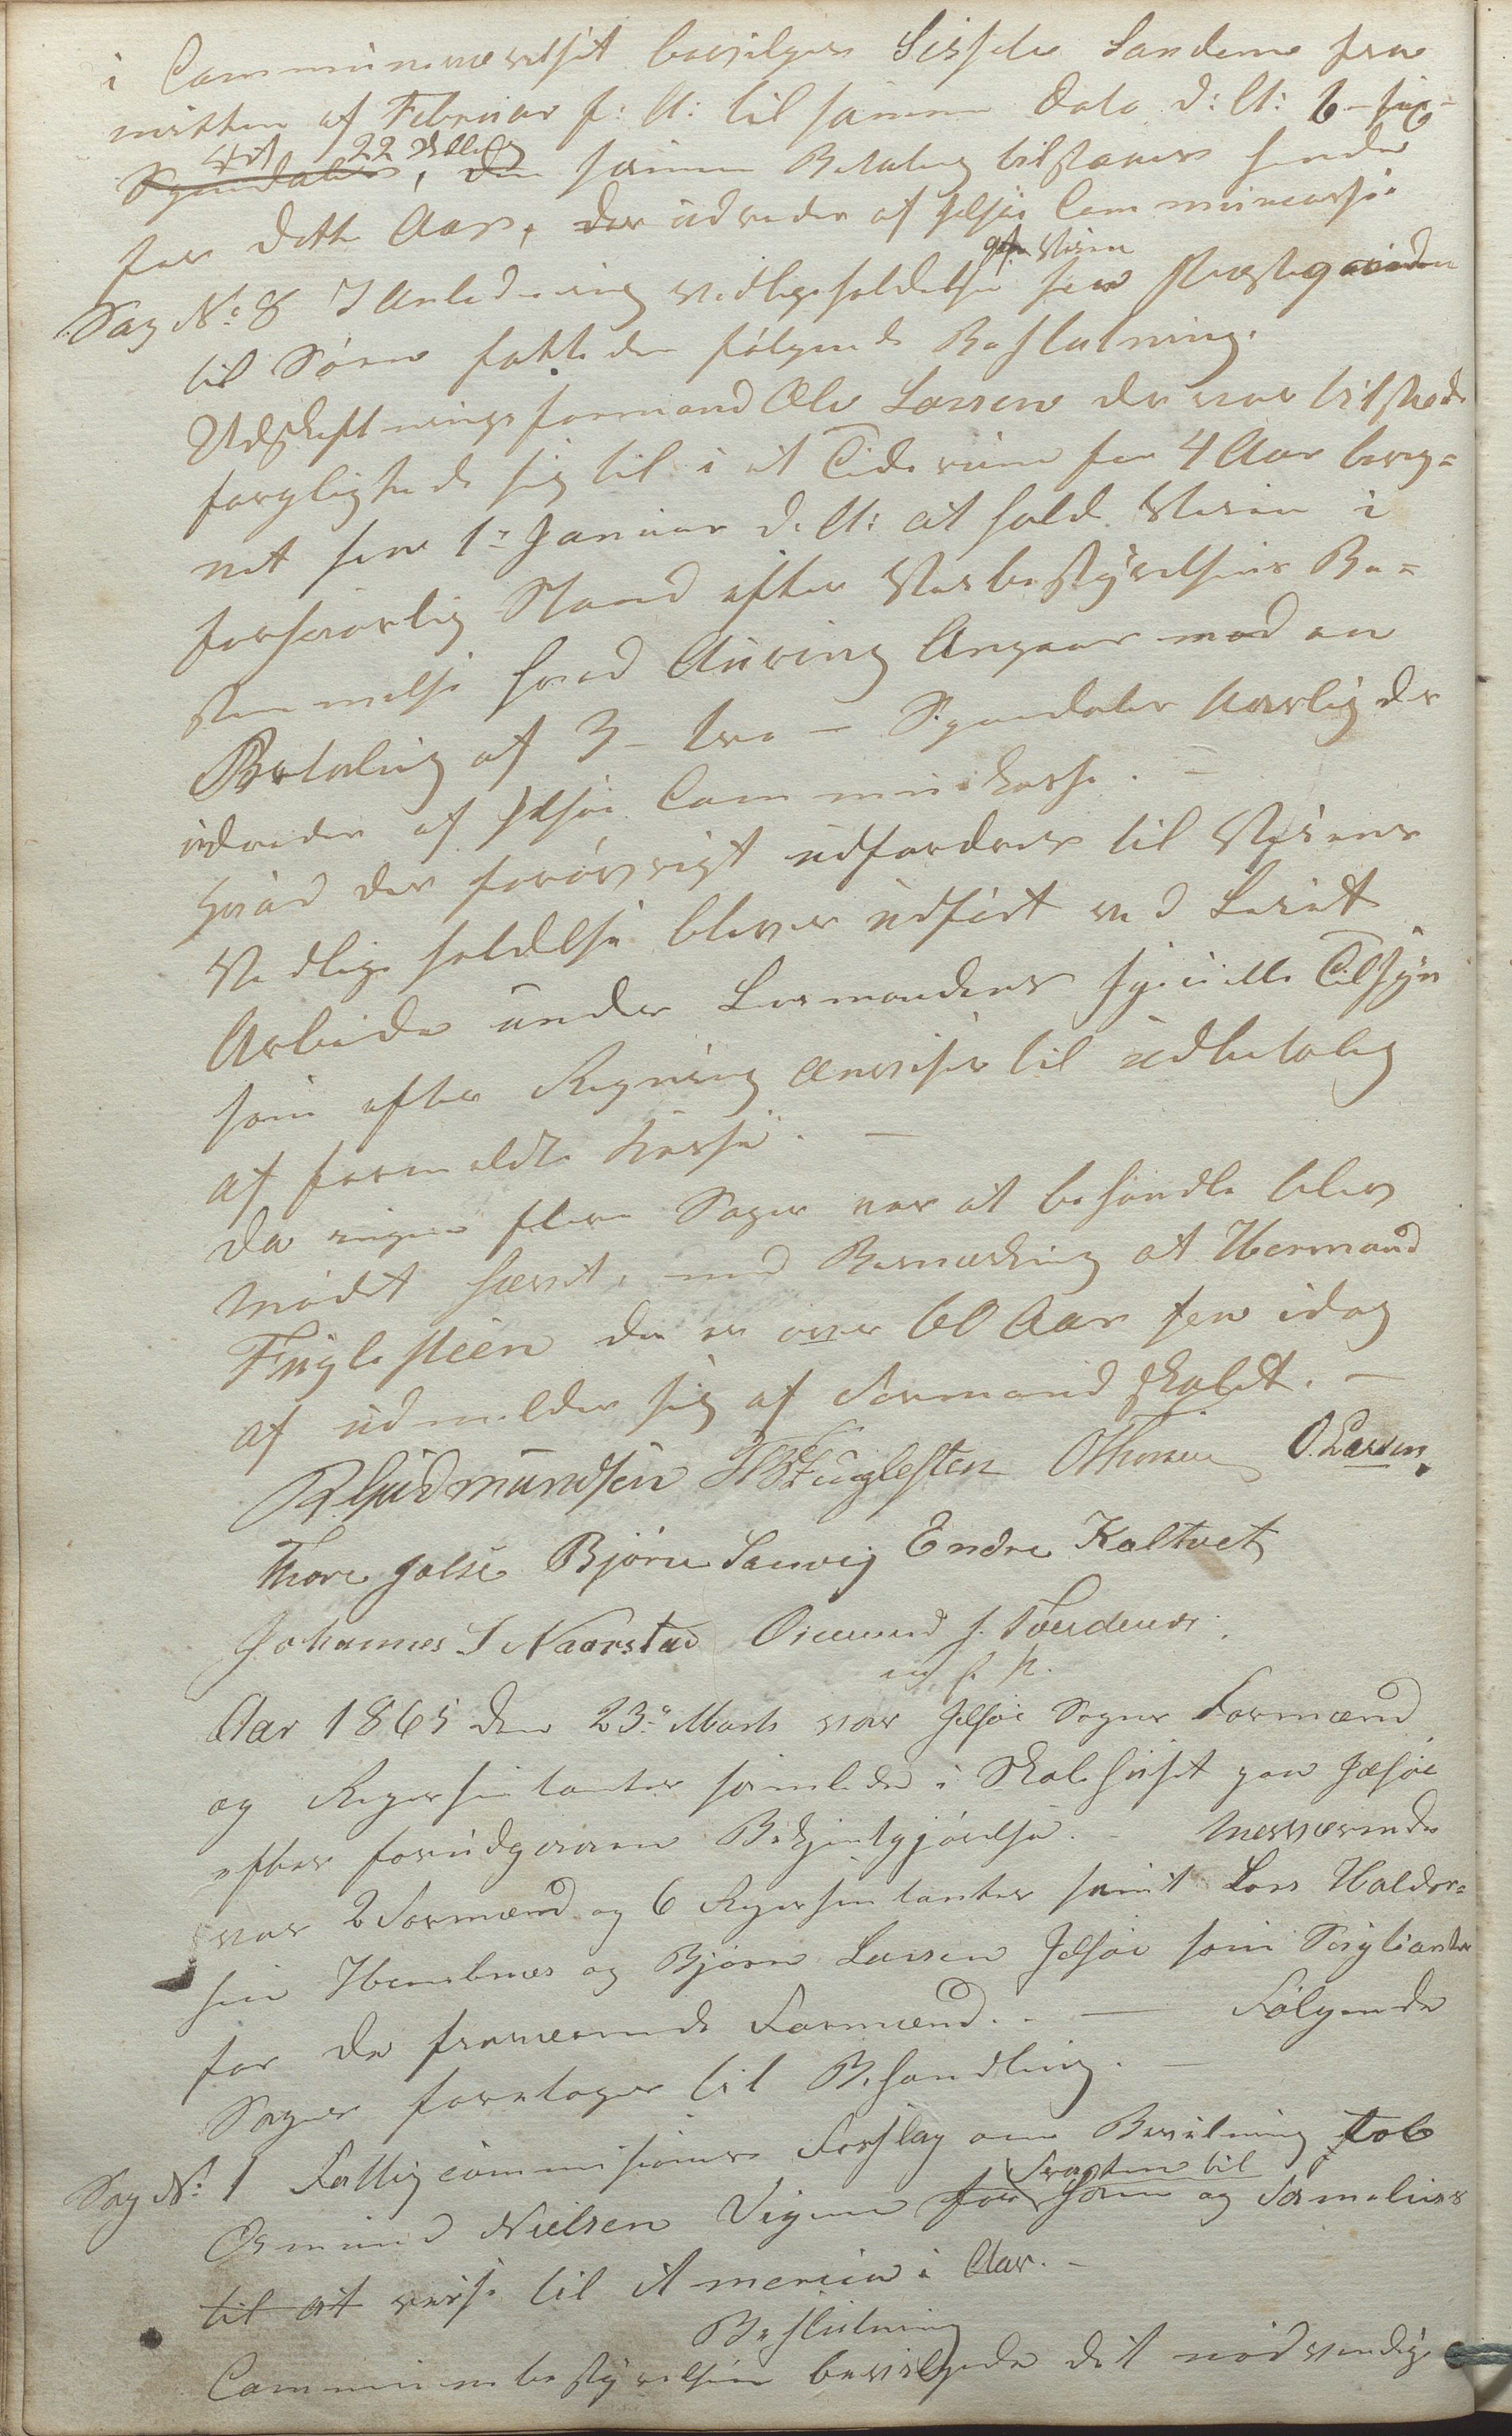 i Communeværelset bevilges Sissele Sandene fra
mitten af Februar f: A: til samme Dato d: A: 6 - sex -
Ort 22 Skilling
Speciedaler, den samme Betaling tilstaaes hende
for dette Aar, der udredes af Jelsøe Communecasse
Sag No 8 I Anledning Vedligeholdelse af Veien fra Prestegaarden
til Søen fattedes følgende Beslutning.
Udskiftningsformand Ole Larsen der var tilstede
forpligtede sig til i et Tiderum for 4 Aar bereg=
net fra 1ste Januar d. A: at holde Veien i
forsvarlig Stand efter Veibestyrelsens Be=
stemmelse hvad Auring Angaar mod en
Betaling af 3 - tre - Speciedaler Aarlig der
udredes af Jelsøe Communekasse. -
Hvad der forøvrigt udfordres til Veiens
Vedligeholdelse bliver udført ved Leiet
Arbeide under Lensmandens specielle Tilsyn
som efter Regning anvises til udbetaling
af formeldte Kasse. -
Da ingen flere Sager var at behandle blev
Mødet hævet, med Bemærkning at Hermand
Fuglesteen der er over 60 Aar fra idag
af udmelder sig af Formandskabet. -
R Gudmundsen H B Fuglesten O Thorsen O. Larsen
Thore Jelse Bjørn Sanvig Endre Kaltvet
Johannes J Naarstad Osmund J. Tvendenes
m. f. P.
Aar 1865 den 23de Marts var Jelsøe Sogns Formænd
og Representanter samlede i Skolehuset paa Jelsøe
efter forudgaaen Bekjentgjørelse. - Nærværende
var 2 Formænd og 6 Representanter samt Lars Haldor=
sen Hemebnes og Bjørn Larsen Jelsøe som Suplianter
for de fraværende Formænd. - Følgende
Sager foretages til Behandling. -
Sag No 1 Fattigcommisionens Forslag om Bevilning
Fragten til
Osmund Nielsen Vigene for ham og Familiens
til at reise til America i Aar. -
Beslutning
Communebestyrelsen bevilgede det nødvendige